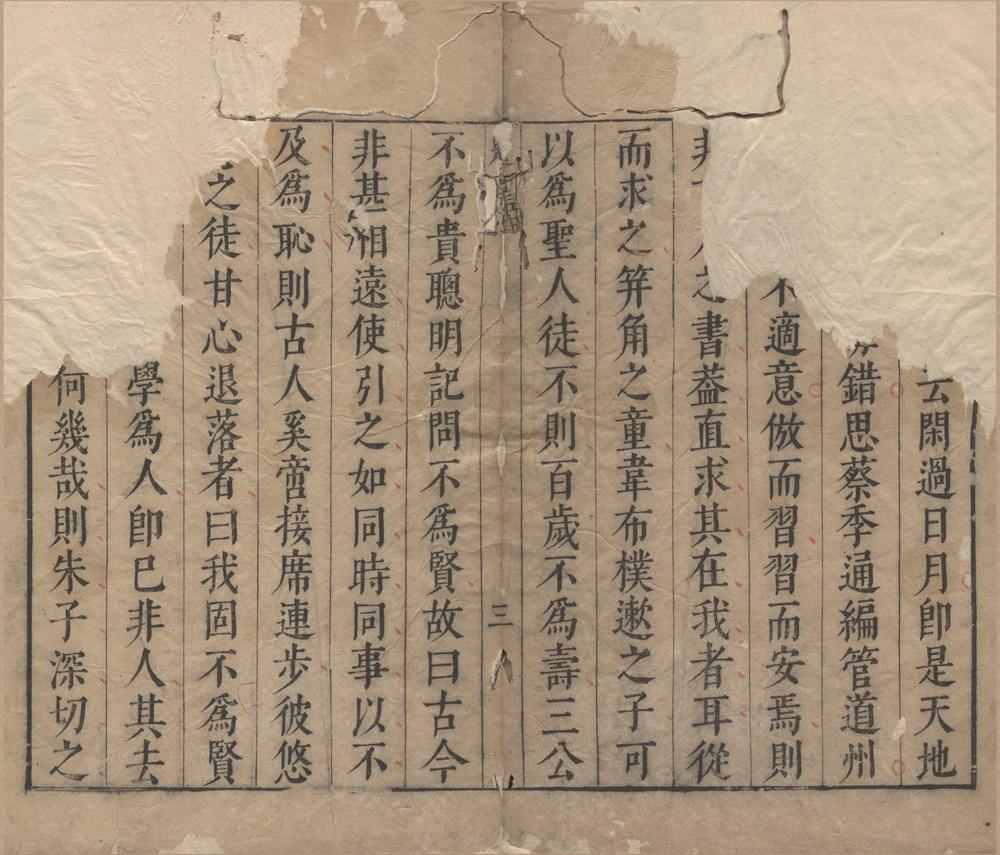 云閑過日月卽是天地
錯思蔡季通編管道州
不適意倣而習習而安焉則
非之書葢直求其在我者耳從
而求之笄角之童韋布樸遬之子可
以爲聖人徒不則百歲不爲壽三公
三
不爲貴聰明記問不爲賢故曰古今
非甚相遠使引之如同時同事以不
及爲恥則古人奚啻接席連步彼悠
之徒甘心退落者曰我固不爲賢
學爲人卽已非人其去
何幾哉則朱子深切之